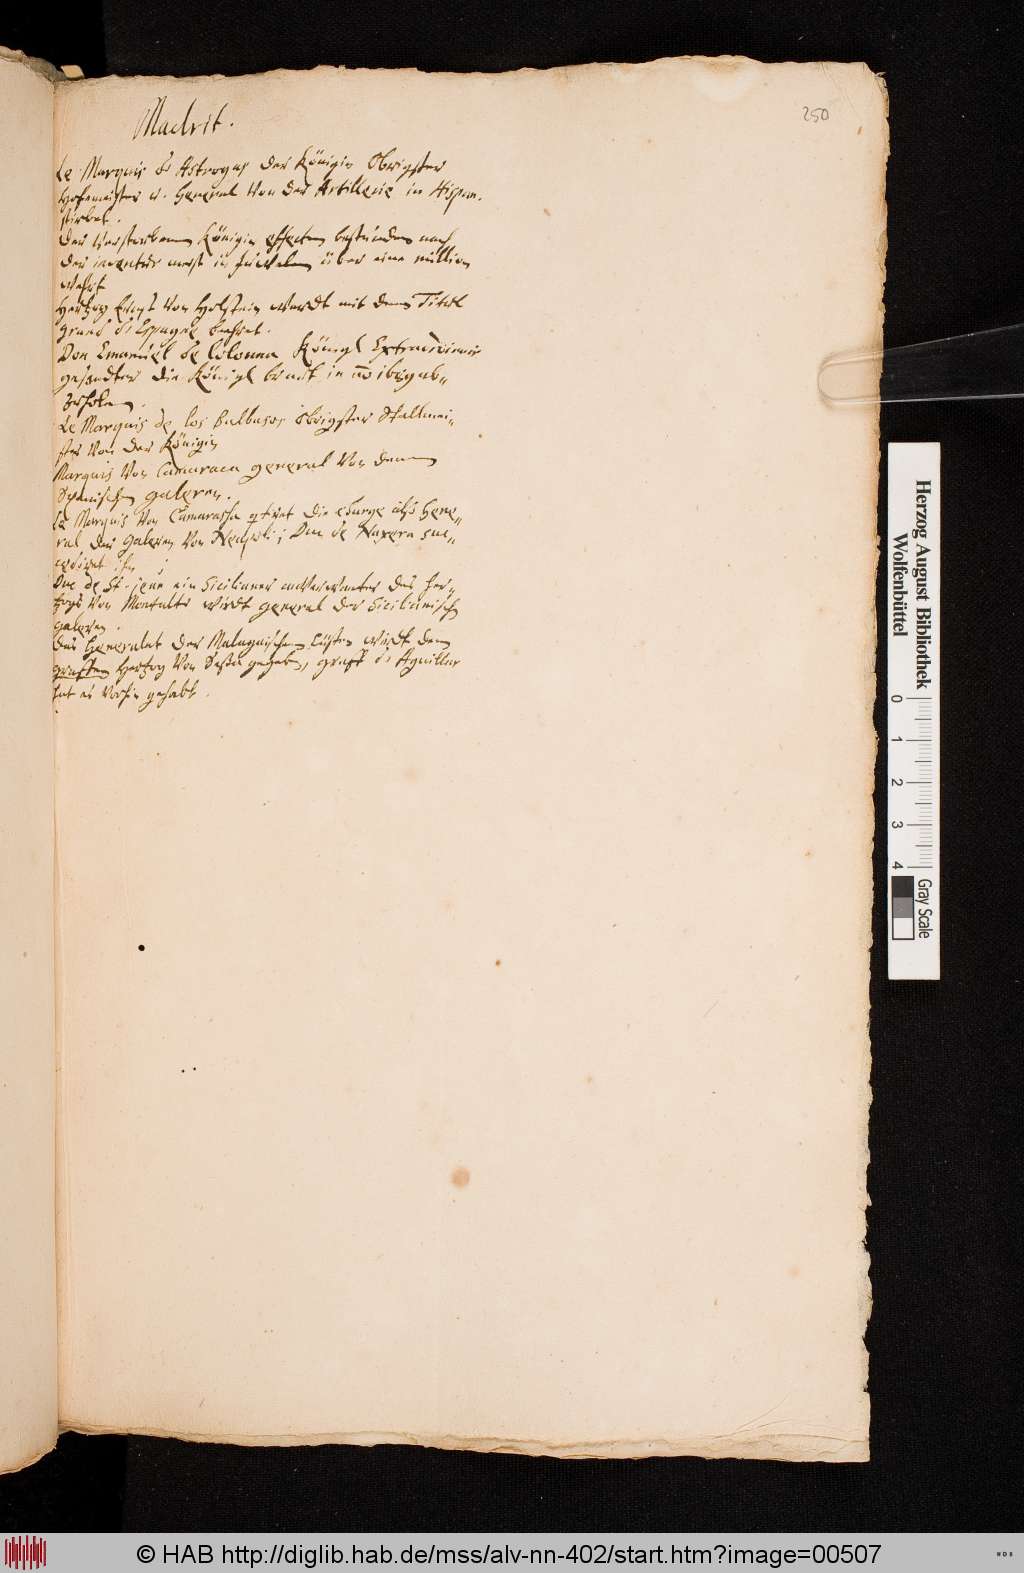 250
Madrit.
Le Marquis de Astrogas der Königin Obrigster
Hofemeister v. General von der Artillerie in Hispan.
stirbet.
Der verstorbenen Königin effecten bestunden nach
der inventur meist in Juwelen über eine million
wehrt
Hertzog Ernst von Holstein werdt mit dem Tittel
Grand d'Espagne beehret.
Don Emanuel de Colonna Königl Extraordinair
gesandter die Königl braut in
zerholen.
Le Marquis de los Balbases obrigster Stallmei-
ster von der Königin
Marquis von Camaraca general von denen
Spanischen galeren.
Le Marquis von Camarassa die charge als Gene-
ral der Galeren von Neapoli; Duc de Naxera suc-
cediret ihn
Duc de St. ein Sicilianer anverwanter des Her-
tzogs von Montalte wirdt general der Sicilianisch
galeren.
Das Generalat der Malagaischen Cüsten wirdt dem
graffen Hertzog von Sessa gegeben, graff de Aguillar
hat es vorhin gehabt.
Herzog August Bibliothek
Wolfenbüttel
0 1 2 3 4
Gray Scale
© HAB http://diglib.hab.de/mss/alv-nn-402/start.htm?image=00507